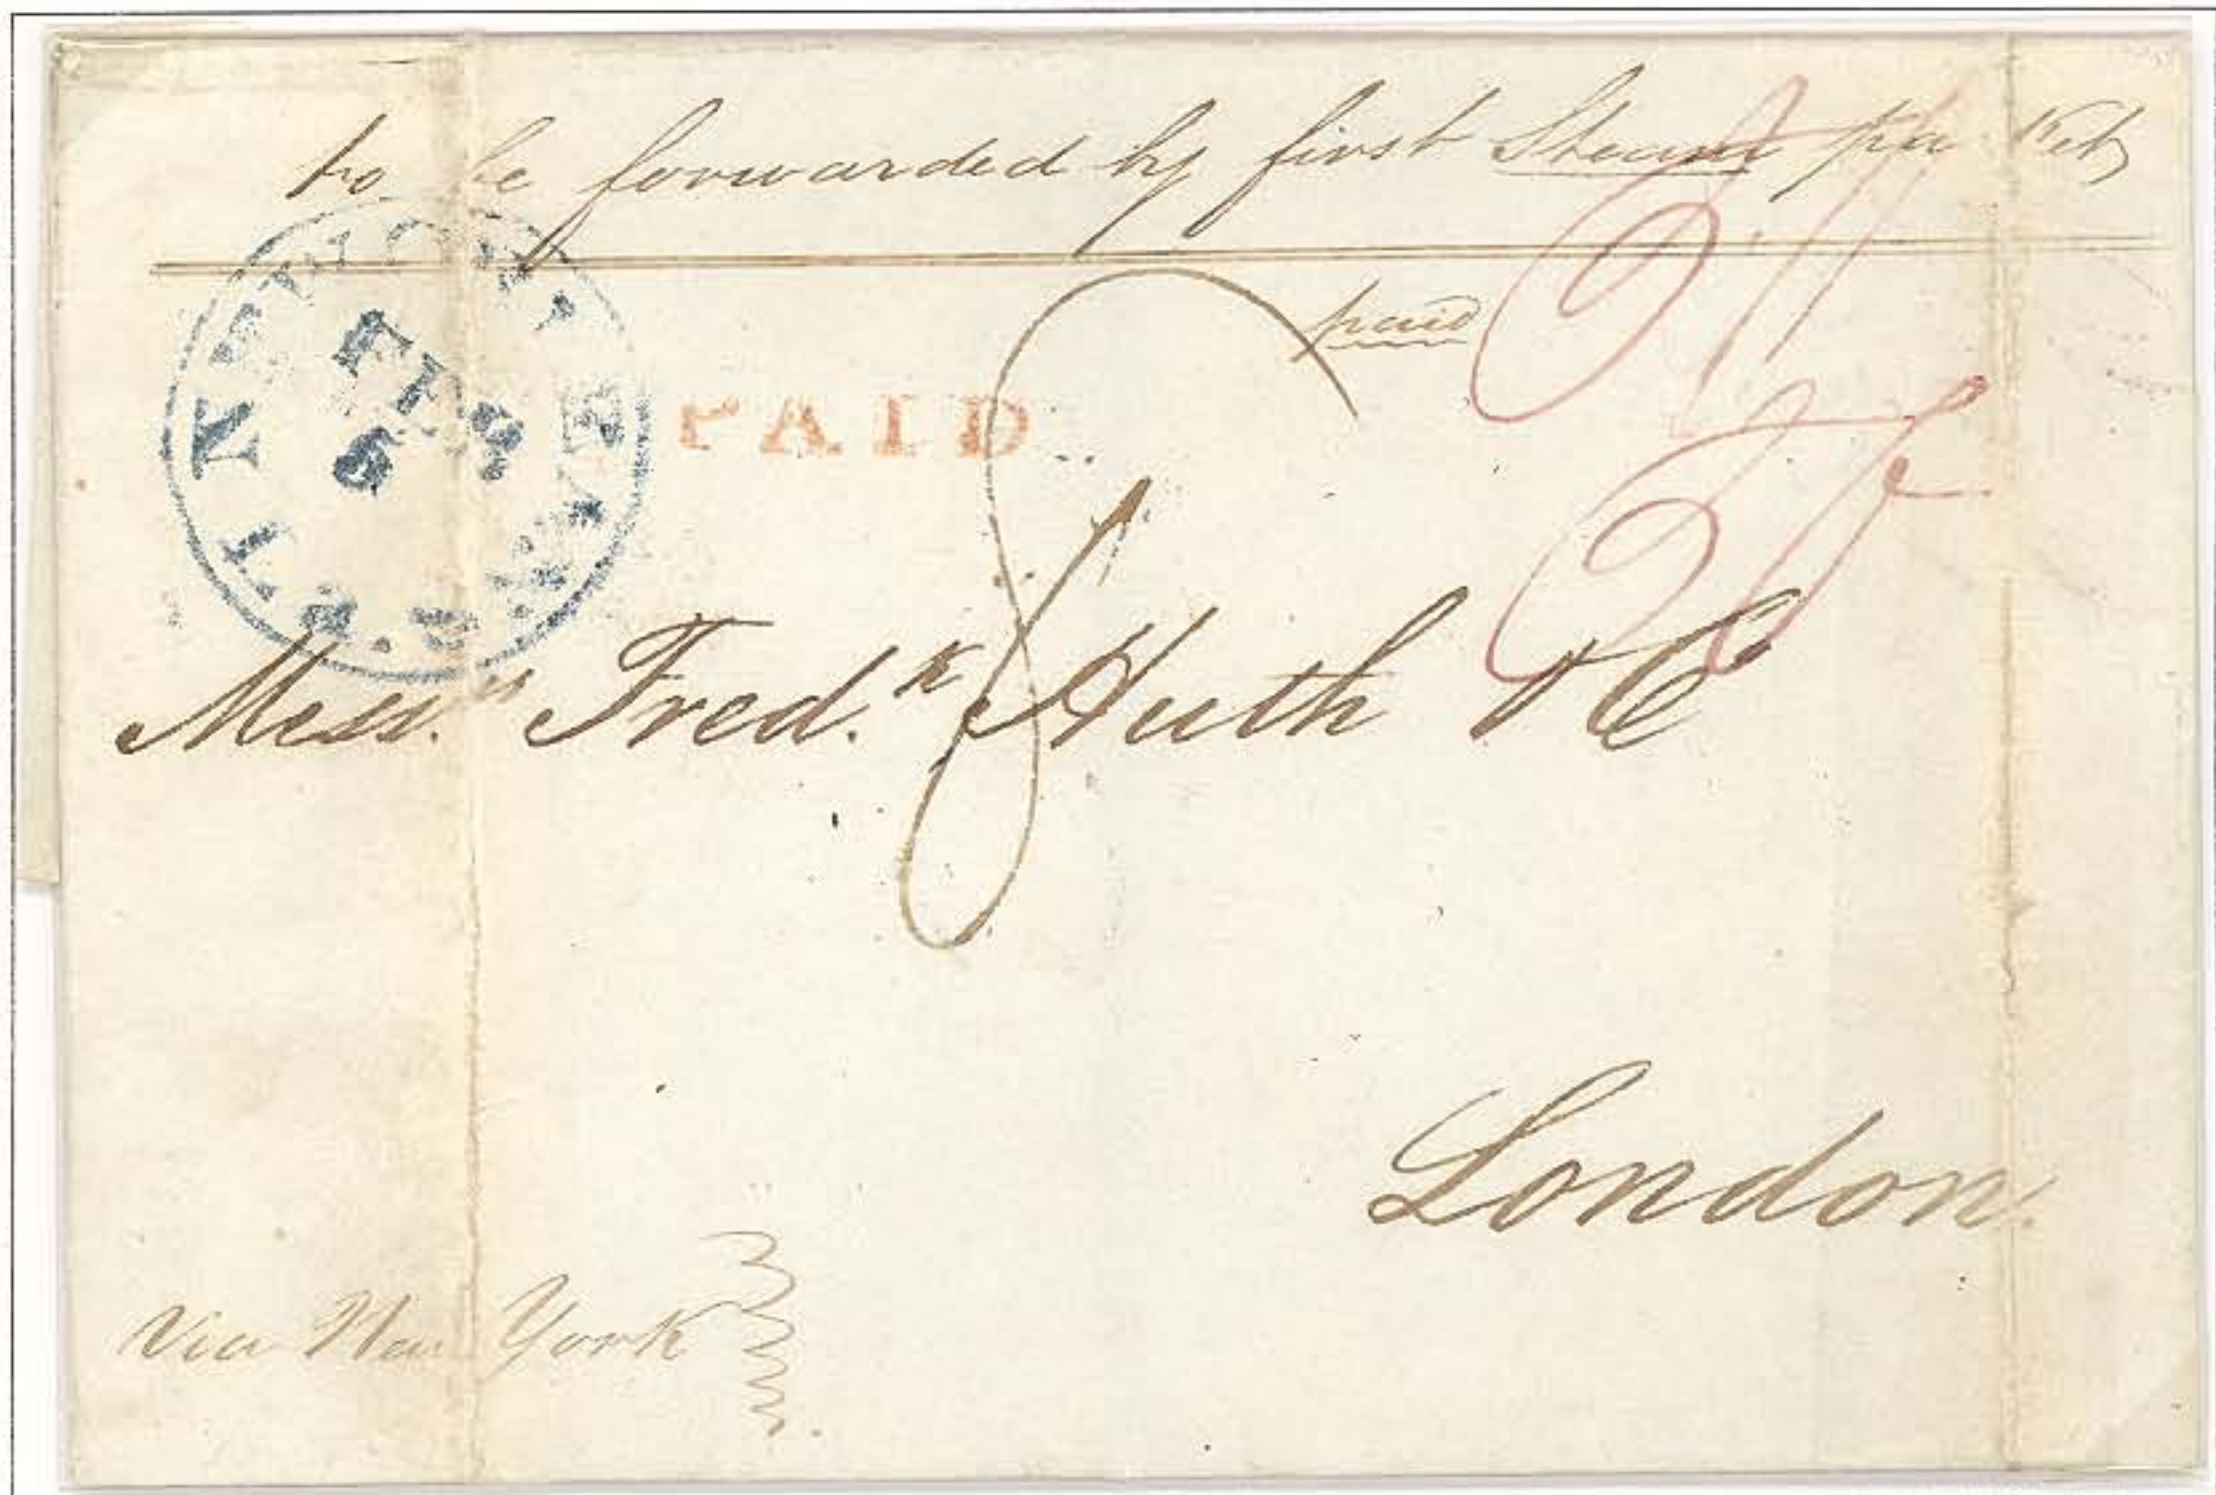 to be forwarded by first Steam packet
paid
FEB
5
PAID
8
Mess.rs Fred.k Huth & Co
London.
Via New York